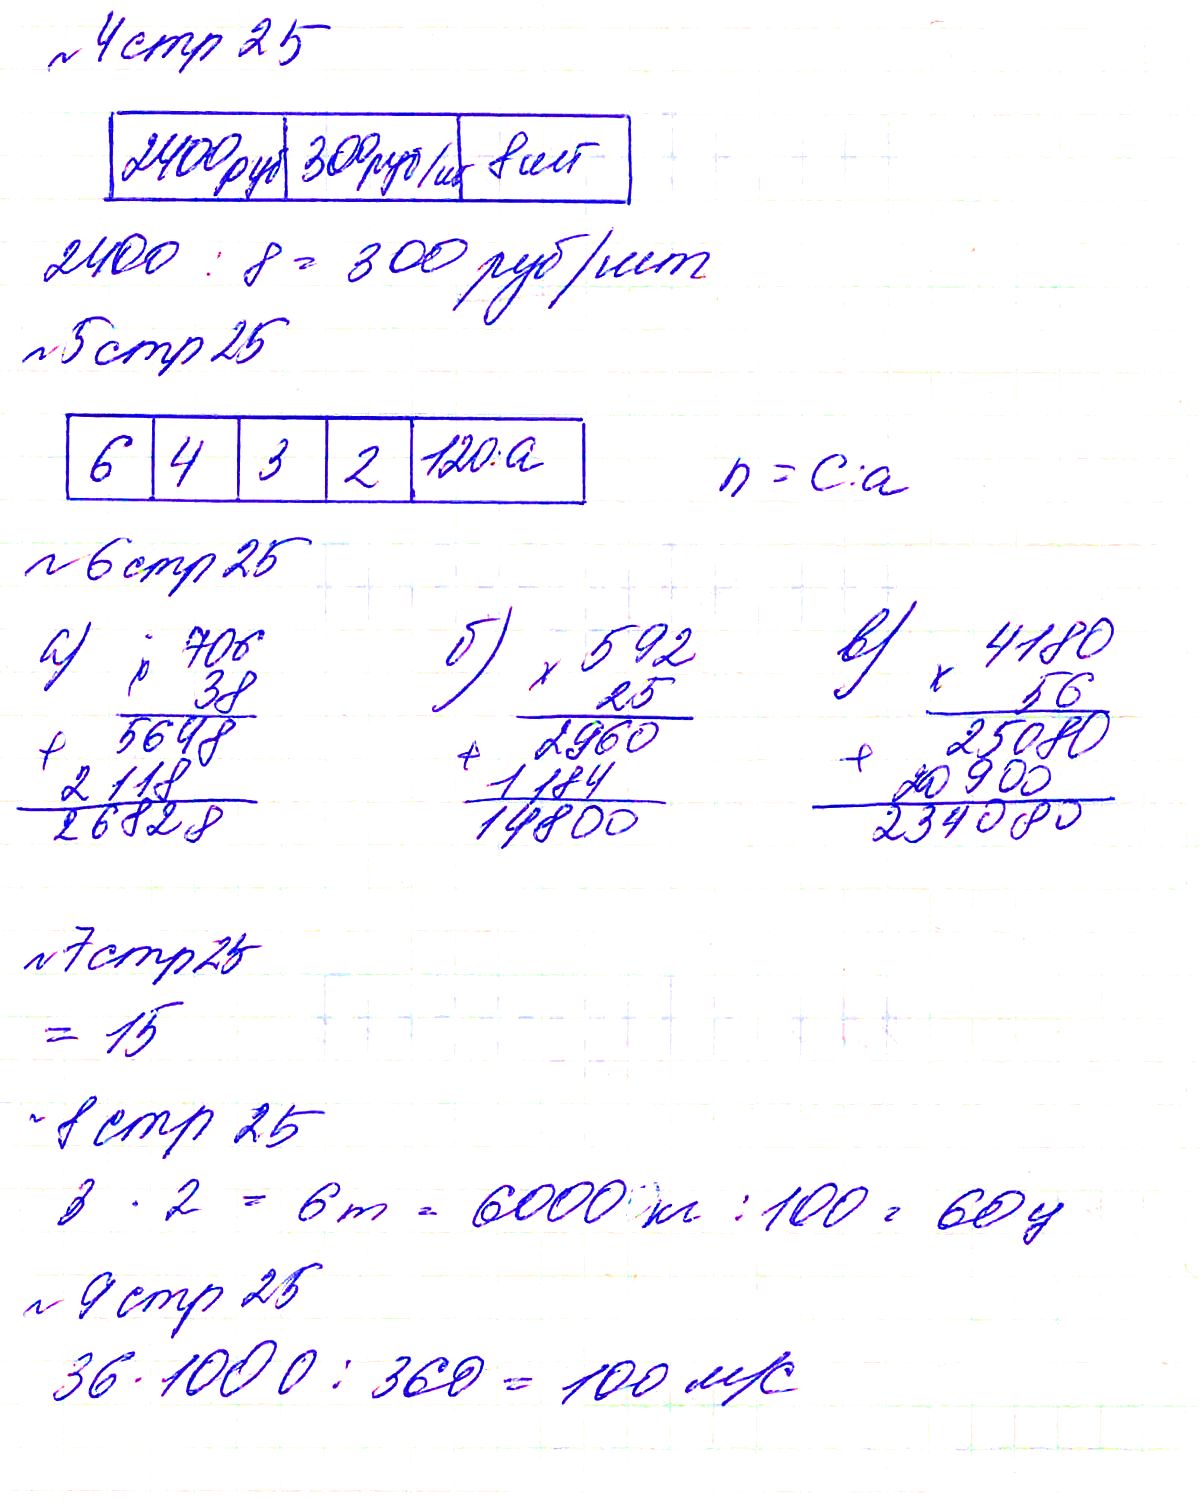 ~ 4 стр 25
2400 руб 300 руб/шт 8 шт
2400 : 8 = 300 руб/шт
~ 5 стр 25
6 4 3 2 120:a n = C:a
~ 6 стр 25
а) 706 б) 592 в) 4180
x 38 x 25 x 56
5648 2960 25080
+ 2118 + 1184 + 20900
26828 14800 234080
~ 7 стр 25
= 15
~ 8 стр 25
3 · 2 = 6 т = 6000 кг : 100 = 60 ц
~ 9 стр 25
36 · 1000 : 360 = 100 м/с